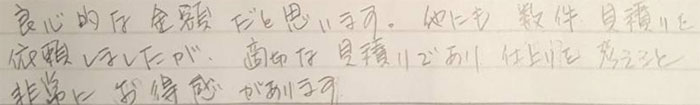 良心的な金額だと思います。他にも 数件 見積りを
依頼しましたが、適切な見積りであり 仕上りを 考えると
非常に お得感 があります